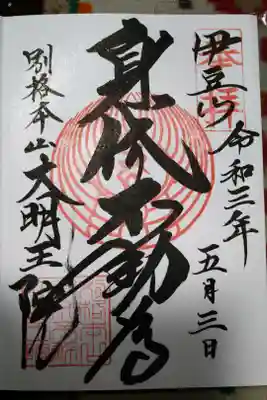 奉拝
伊豆山 令和三年
五月三日
身代不動尊
別格本山大明王院